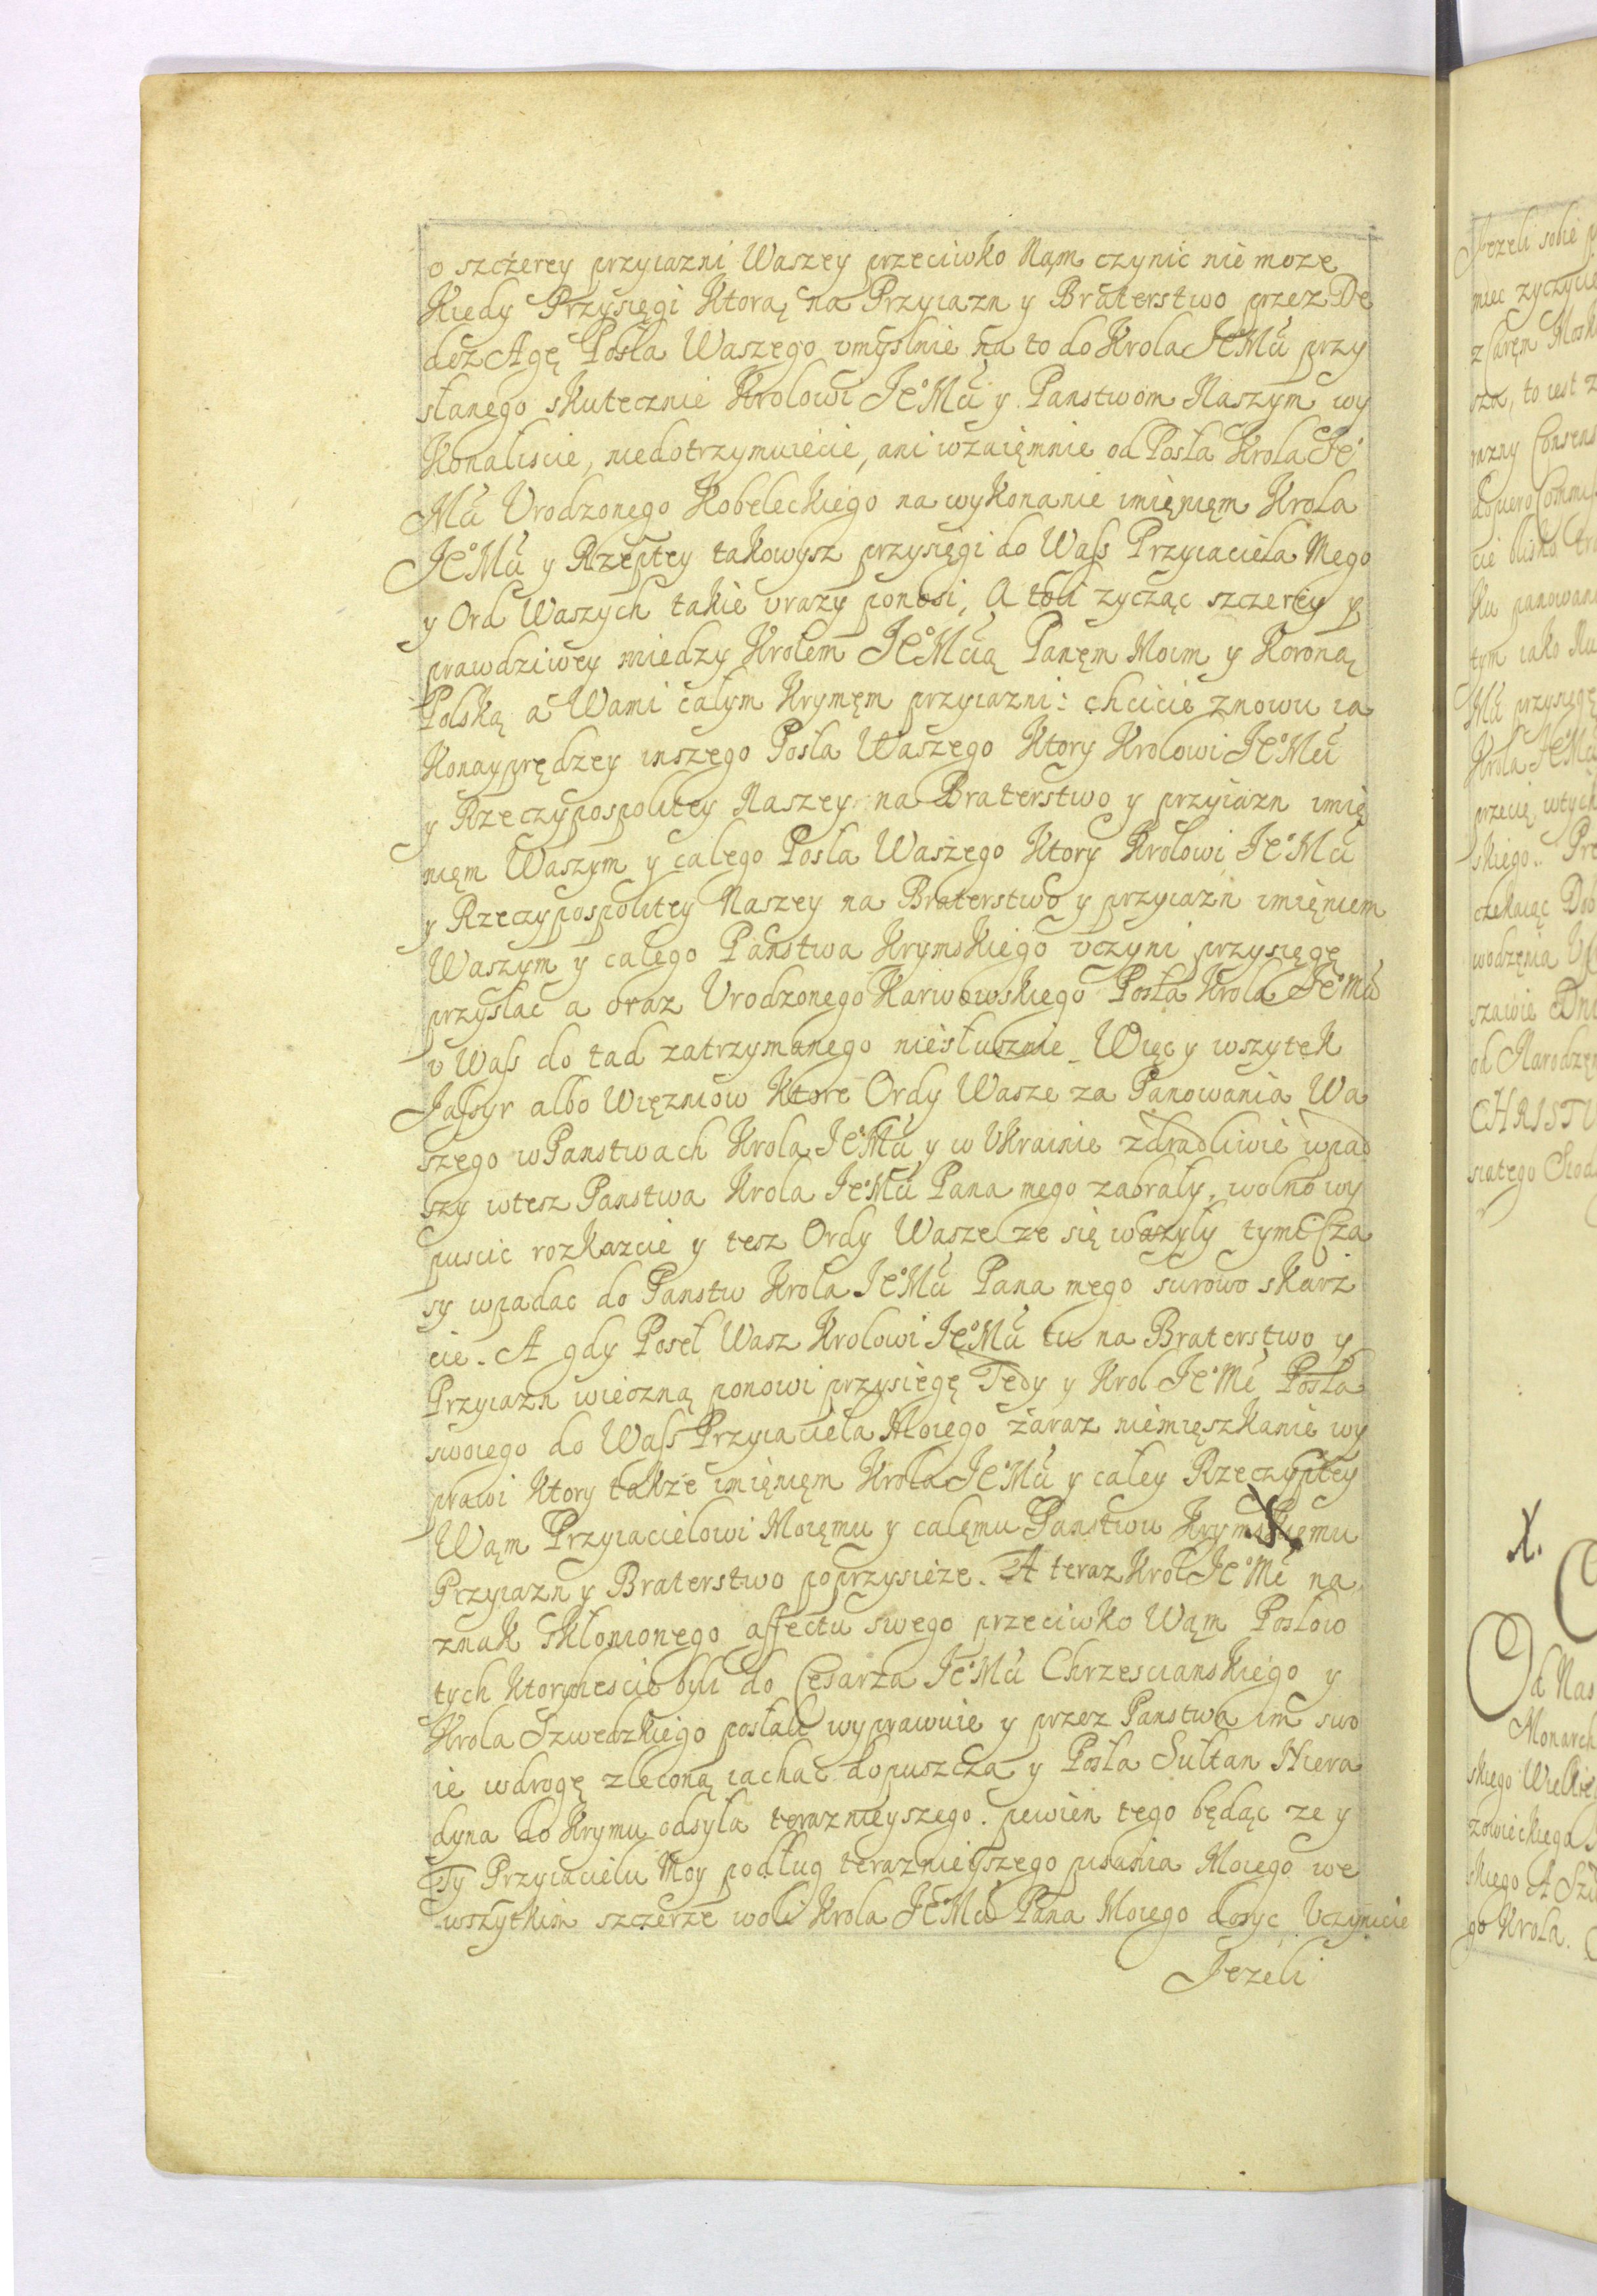 o szczerey przyiazni Waszey przeciwko Nąm czynić nie moze
Kiedy Przysięgi Ktorą na Przyiazn y Braterstwo przez De
desz Agę Posła Waszego vmyslnie na to do Krola JeoMci przy
słanego skutecznie Krolowi JeoMci y Panstwom Naszym wy
Konaliscie, niedotrzymuiecie, ani wzaięmnie od Posła Krola Jeo
Mci Vrodzonego Kobeleckiego na wykonanie imięnięm Krola
JeoMci y Rzeptey takowysz przysięgi do Wass Przyiaciela Mego
y Ord Waszych takie vrazy ponosi, A toli zycząc szczerey y
prawdziwey miedzy Krolem JeoMcią Panęm Moim y Koroną
Polską a Wami całym Krymęm przyiazni: chcicie znowu ia
Konayprędzey inszego Posła Waszego Ktory Krolowi JeoMci
y Rzeczypospolitey Naszey na Braterstwo y przyiazn imię
nięm Waszym y całego Posła Waszego Ktory Krolowi JeoMci
y Rzeczypospolitey Naszey na Braterstwo y przyiazń imięniem
Waszym y całego Panstwa Krymskiego vczyni przysięgę
przysłac a oraz Vrodzonego Karwowskiego Posła Krola JeoMci
v Wass do tad zatrzymanego niesłusznie. Więc y wszytek
Jassyr albo Więzniow Ktore Ordy Wasze za Panowania Wa
szego w Panstwach Krola JeoMci y w Ukrainie zdradliwie wpad
szy wtesz Panstwa Krola JeoMci Pana mego zabrały, wolno wy
puscic rozkazcie y tesz Ordy Wasze ze się wazyły tymi Cza
sy wpadac do Panstw Krola JeoMci Pana mego surowo skarz
cie. A gdy Poseł Wasz Krolowi JeoMci tu na Braterstwo y
Przyiazn wieczną ponowi przysięgę Tedy y Krol JeoMć Posła
swoiego do Wass Przyiaciela Moiego zaraz niemięszkanie wy
prawi Ktory także imięnięm Krola JeoMci y całey Rzeczyptey
Wąm Przyiacielowi Moięmu y całęmu Panstwu Krymskiemu
Przyiazn y Braterstwo poprzysięze. A teraz Krol JeoMć na
znak skłonionego affectu swego przeciwko Wąm Posłow
tych Ktorychescie byli do Cesarza JeoMci Chrzescianskiego y
Krola Szwedzkiego posłali wyprawuie y przez Panstwa im swo
ie wdrogę zleconą iachać dopuszcza y Posła Sultan Hiera
dyna do Krymu odsyła teraznieyszego. pewien tego będąc ze y
Ty Przyiacielu Moy podług teraznieyszego pisania Moiego we
wszytkim szczerze woli Krola JeoMci Pana Moiego dosyc Uczynicie
Jezeli